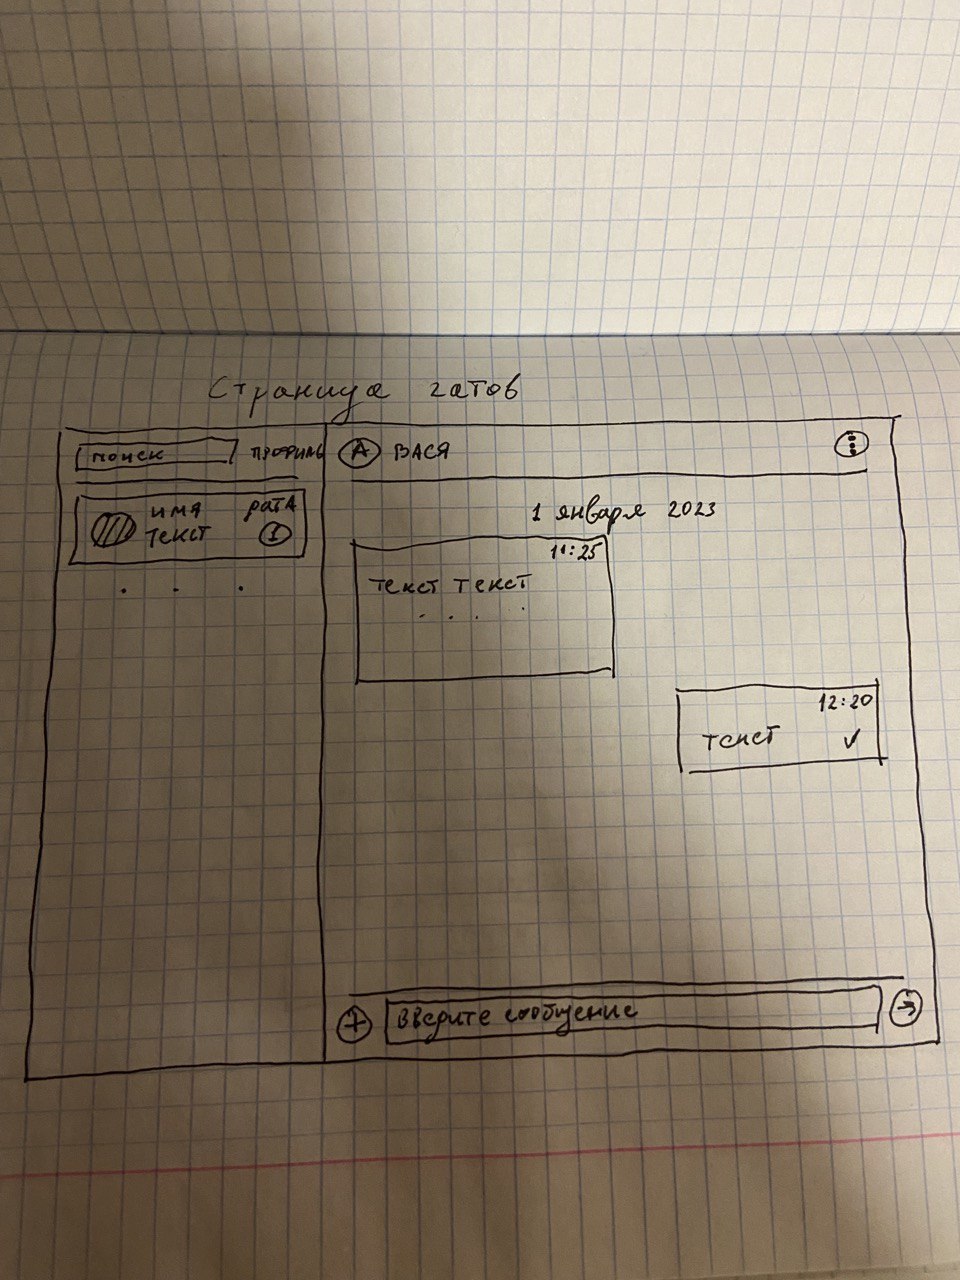 Страница чатов
поиск профиль
А ВАСЯ
имя дата
текст 1
1 января 2023
11:25
текст текст
. . . .
12:20
текст ✓
+ введите сообщение →